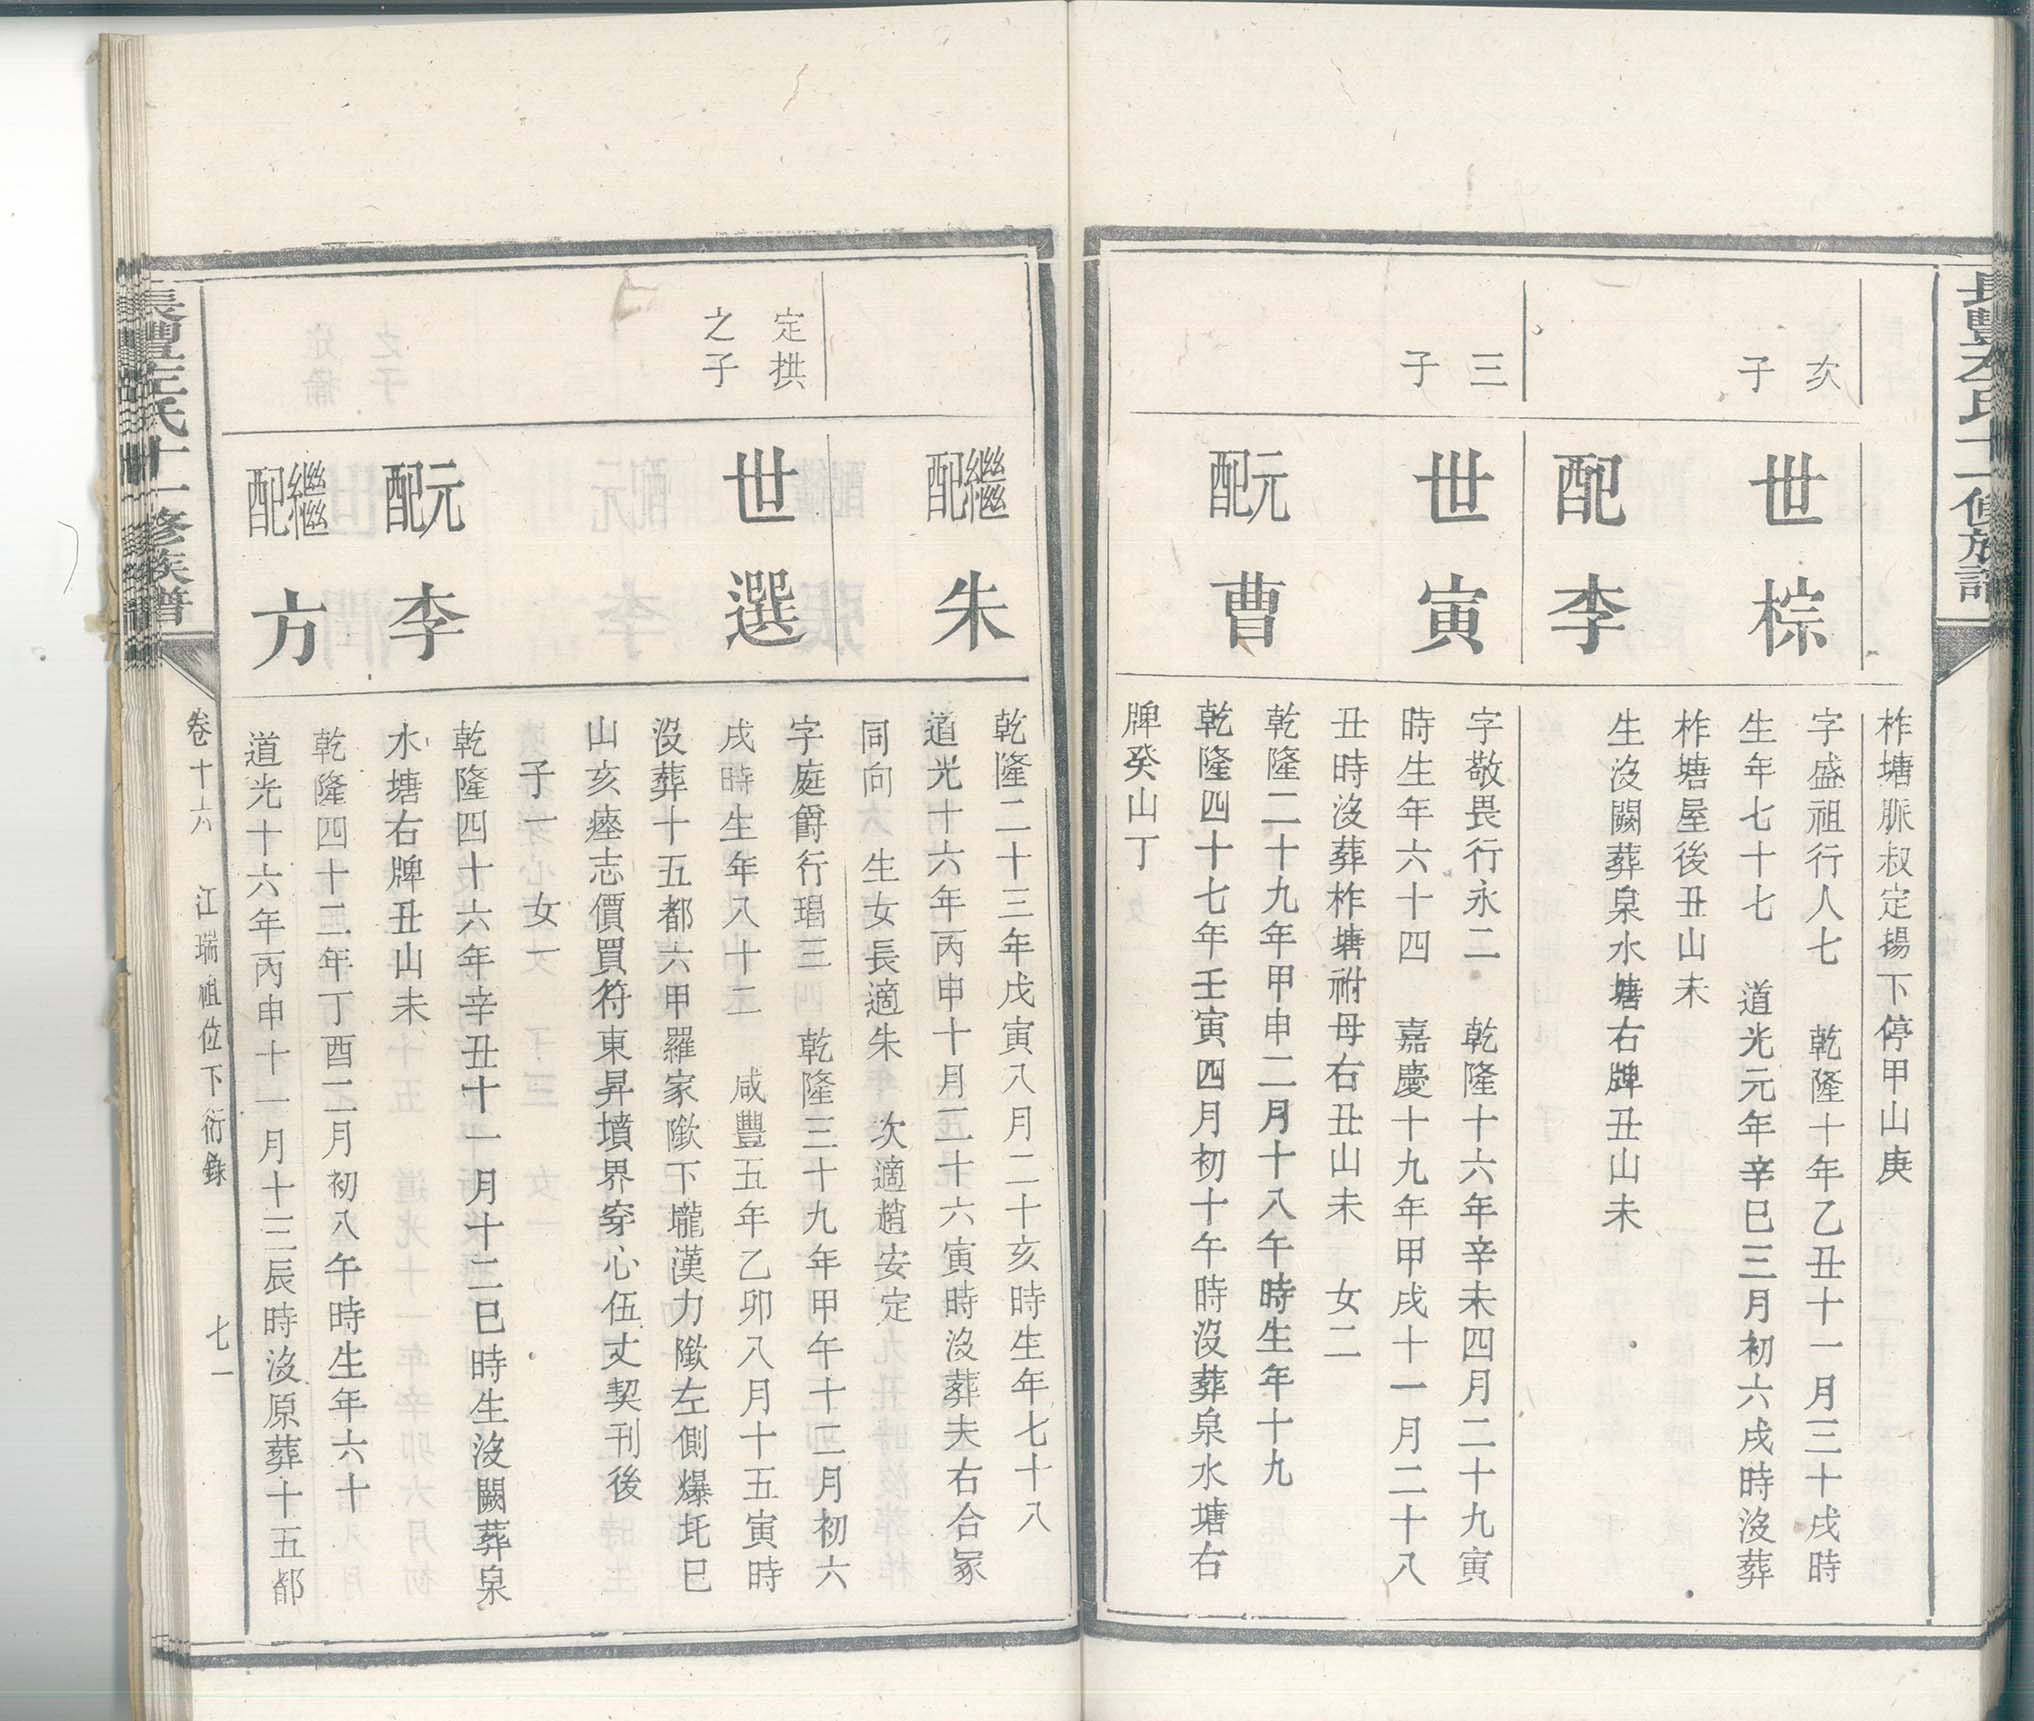 長豐左氏十一修族譜
柞塘脈叔定揚下停甲山庚
次
子
世棕
字盛祖行人七 乾隆十年乙丑十一月三十戌時
生年七十七 道光元年辛巳三月初六戌時沒葬
柞塘屋後丑山未
配李
生沒闕葬泉水塘右牌丑山未
三
子
世寅
字敬畏行永二 乾隆十六年辛未四月二十九寅
時生年六十四 嘉慶十九年甲戌十一月二十八
丑時沒葬柞塘祔母右丑山未 女二
元配曹
乾隆二十九年甲申二月十八午時生年十九
乾隆四十七年壬寅四月初十午時沒葬泉水塘右
牌癸山丁
繼配朱
乾隆二十三年戊寅八月二十亥時生年七十八
道光十六年丙申十月二十六寅時沒葬夫右合冢
同向 生女長適朱 次適趙安定
定拱
之子
世選
字庭爵行瑁三 乾隆三十九年甲午十二月初六
戌時生年八十二 咸豐五年乙卯八月十五寅時
沒葬十五都六甲羅家隞下壠漢力隞左側爆圫巳
山亥瘞志價買符東昇墳界穿心伍丈契刊後
子一 女一
元配李
乾隆四十六年辛丑十一月十二巳時生沒闕葬泉
水塘右牌丑山未
繼配方
乾隆四十二年丁酉二月初八午時生年六十
道光十六年丙申十一月十三辰時沒原葬十五都
長豐左氏十一修族譜
卷十六 江瑞祖位下衍錄 七一